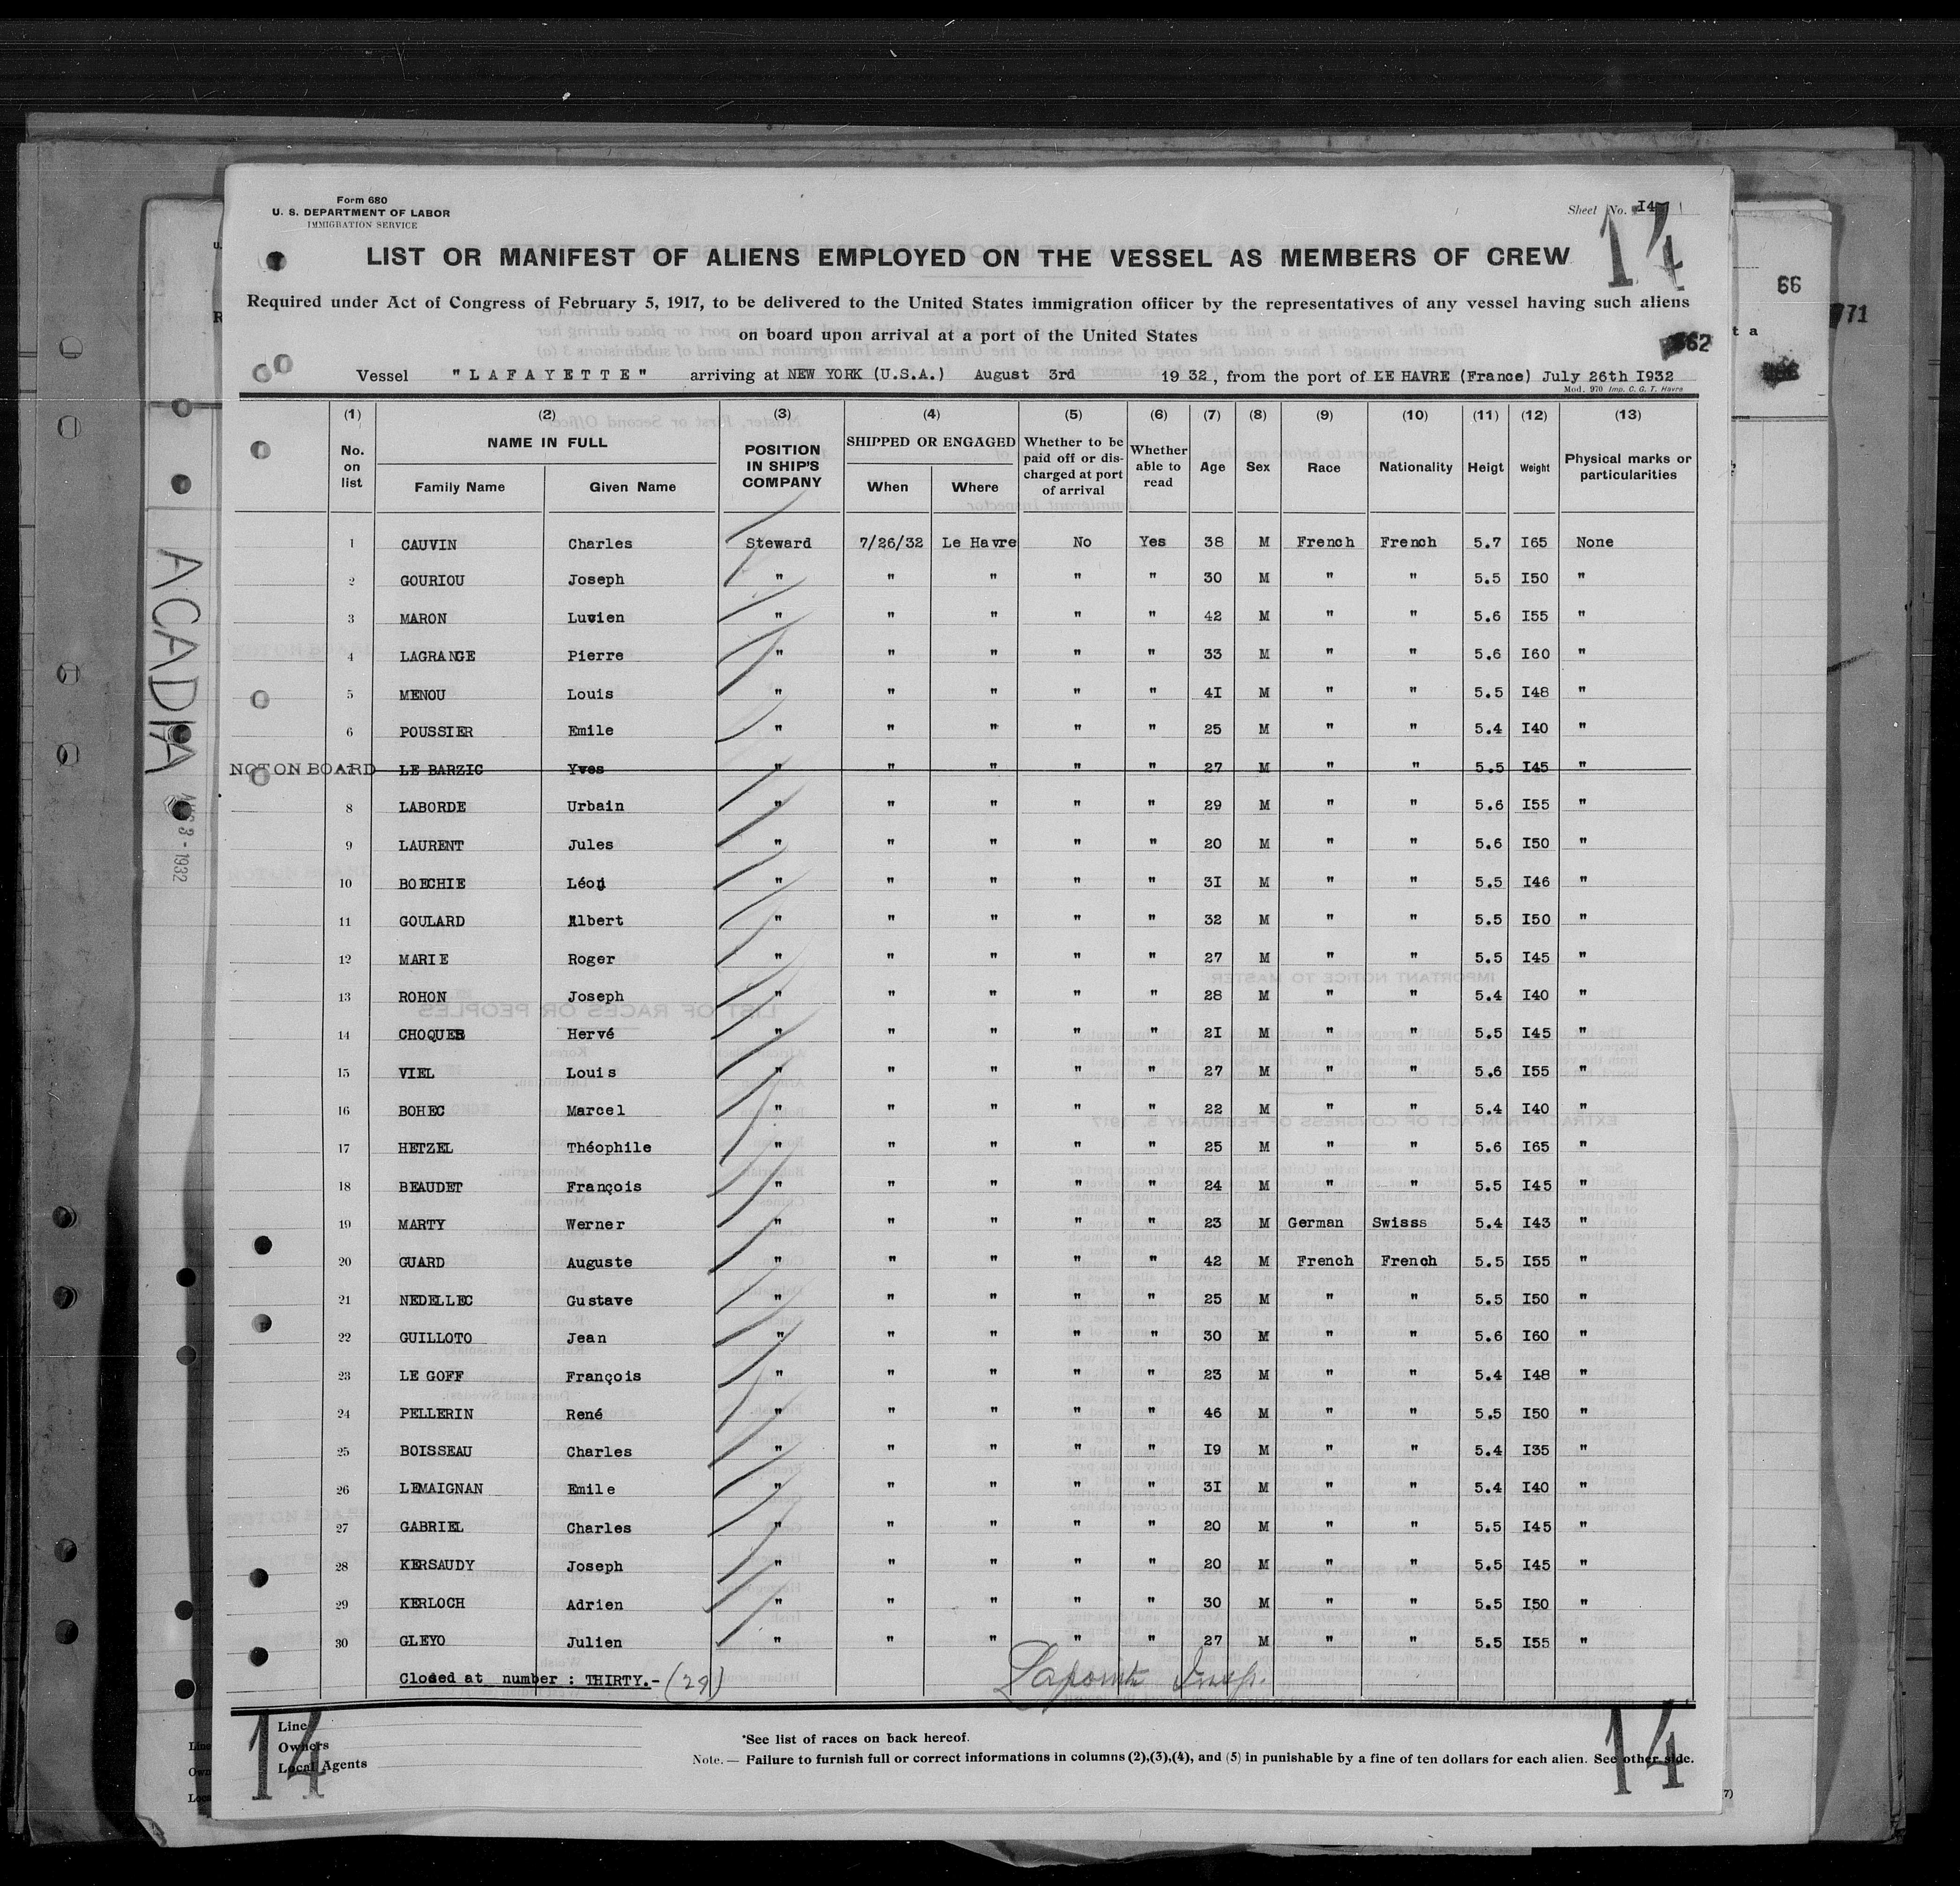 Form 680
U. S. DEPARTMENT OF LABOR
IMMIGRATION SERVICE
Sheet No. I4
14
LIST OR MANIFEST OF ALIENS EMPLOYED ON THE VESSEL AS MEMBERS OF CREW
Required under Act of Congress of February 5, 1917, to be delivered to the United States immigration officer by the representatives of any vessel having such aliens
on board upon arrival at a port of the United States
66
71
t a
62
Vessel "LAFAYETTE" arriving at NEW YORK (U.S.A.) August 3rd 1932, from the port of LE HAVRE (France) July 26th I932
Mod. 970 Imp. C. G. T. Havre
(1) (2) (3) (4) (5) (6) (7) (8) (9) (10) (11) (12) (13)
No. on list NAME IN FULL Family Name Given Name POSITION IN SHIP'S COMPANY SHIPPED OR ENGAGED When Where Whether to be paid off or discharged at port of arrival Whether able to read Age Sex Race Nationality Heigt Weight Physical marks or particularities
1 CAUVIN Charles Steward 7/26/32 Le Havre No Yes 38 M French French 5.7 I65 None
2 GOURIOU Joseph " " " " " 30 M " " 5.5 I50 "
3 MARON Luvien " " " " " 42 M " " 5.6 I55 "
4 LAGRANGE Pierre " " " " " 33 M " " 5.6 I60 "
5 MENOU Louis " " " " " 4I M " " 5.5 I48 "
6 POUSSIER Emile " " " " " 25 M " " 5.4 I40 "
NOT ON BOARD LE BARZIC Yves " " " " " 27 M " " 5.5 I45 "
8 LABORDE Urbain " " " " " 29 M " " 5.6 I55 "
9 LAURENT Jules " " " " " 20 M " " 5.6 I50 "
10 BOECHIE Léon " " " " " 3I M " " 5.5 I46 "
11 GOULARD Albert " " " " " 32 M " " 5.5 I50 "
12 MARIE Roger " " " " " 27 M " " 5.5 I45 "
13 ROHON Joseph " " " " " 28 M " " 5.4 I40 "
14 CHOQUER Hervé " " " " " 2I M " " 5.5 I45 "
15 VIEL Louis " " " " " 27 M " " 5.6 I55 "
16 BOHEC Marcel " " " " " 22 M " " 5.4 I40 "
17 HETZEL Théophile " " " " " 25 M " " 5.6 I65 "
18 BEAUDET François " " " " " 24 M " " 5.5 I45 "
19 MARTY Werner " " " " " 23 M German Swisss 5.4 I43 "
20 GUARD Auguste " " " " " 42 M French French 5.5 I55 "
21 NEDELLEC Gustave " " " " " 25 M " " 5.5 I50 "
22 GUILLOTO Jean " " " " " 30 M " " 5.6 I60 "
23 LE GOFF François " " " " " 23 M " " 5.4 I48 "
24 PELLERIN René " " " " " 46 M " " 5.5 I50 "
25 BOISSEAU Charles " " " " " I9 M " " 5.4 I35 "
26 LEMAIGNAN Emile " " " " " 3I M " " 5.4 I40 "
27 GABRIEL Charles " " " " " 20 M " " 5.5 I45 "
28 KERSAUDY Joseph " " " " " 20 M " " 5.5 I45 "
29 KERLOCH Adrien " " " " " 30 M " " 5.5 I50 "
30 GLEYO Julien " " " " " 27 M " " 5.5 I55 "
Closed at number : THIRTY.- (29) Lapointe Insp.
ACADIA
3 - 1932
14
14
Line
Owners
Local Agents
*See list of races on back hereof.
Note. — Failure to furnish full or correct informations in columns (2),(3),(4), and (5) in punishable by a fine of ten dollars for each alien. See other side.